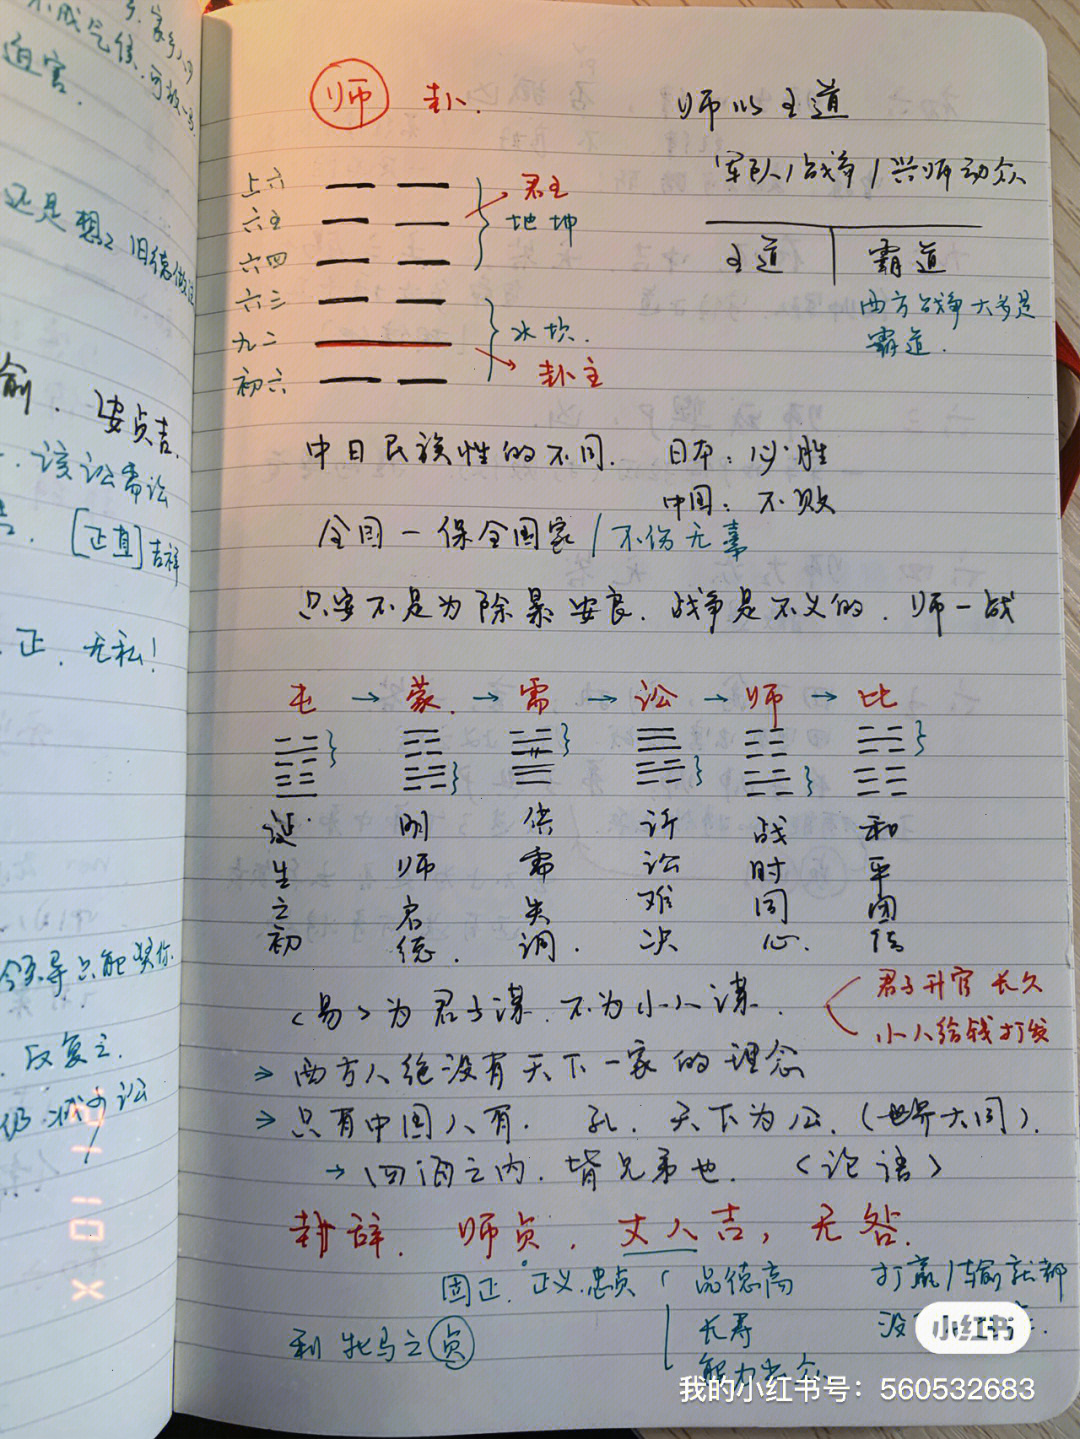 迫害.
还是想之 旧德做
安贞吉.
该讼需讼
[正直]吉祥
正. 无私!
反复之.
师 卦. 师以王道
军队/战争/兴师动众
王道 霸道
西方战争大多是
霸道.
上六
六五 君主
地坤
六四
六三
九二 水坎.
初六 卦主
中日民族性的不同. 日本: 必胜
中国: 不败
全国 — 保全国家/不伤无辜
只要不是为除暴安良. 战争是不义的. 师—战
屯 → 蒙. → 需 → 讼 → 师 → 比
诞生之初
明师启德.
供需失调.
诉讼难决
战时同心.
和平团结
<易>为君子谋. 不为小人谋.
君子升官 长久
小人给钱打发
⇒ 西方人绝没有天下一家的理念
⇒ 只有中国人有. 孔. 天下为公. (世界大同).
→ 四海之内. 皆兄弟也. <论语>
卦辞. 师贞. 丈人吉, 无咎.
固正. 正义.忠贞 品德高 打赢/输
利牝马之贞 长寿
能力
小红书
我的小红书号: 560532683